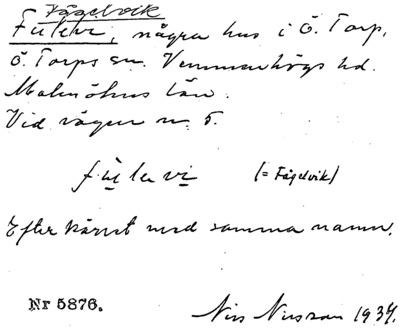 Fågelvik
Fúlevi, några hus i Ö. Torp,
Ö. Torps sn. Vemmenhögs hd.
Malmöhus län.
Vid vägen n. 5.
fùlevi (= Fågelvik)
Efter kärret med samma namn.
Nr 5876. Nils Nilsson 1934.